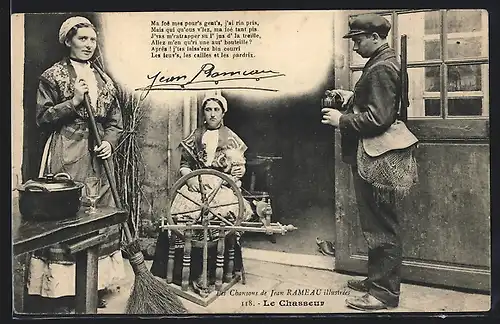 Ma foè mes pour's gens's, j'ai rin pris,
Mais qui qu'ous v'lez, ma foè tant pis
J'vas m'rattraper su l' jus d' la treille,
Allez m'en qu'ri une aut' bouteille ?
Après ! j'les laiss'rez bin couri
Les leuv's, les cailles et les pardrix.
Jean Rameau
Les Chansons de Jean RAMEAU illustrées
118. - Le Chasseur